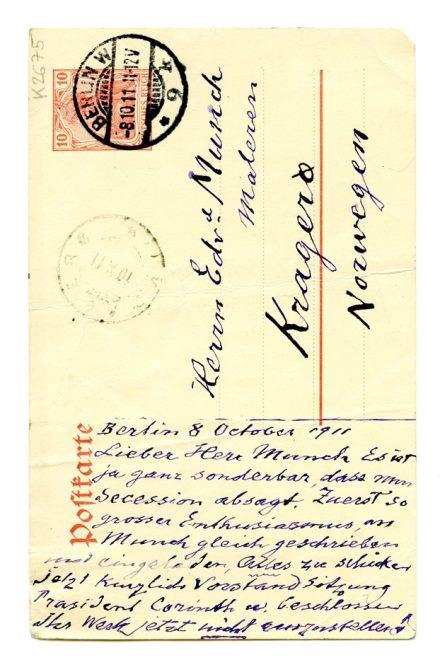 K2675
10 10
BERLIN W
-8.10.11. 11-12V
Herrn Edv. Munch
Maleren
Kragerø
Norwegen
Postkarte
Berlin 8 October 1911
Lieber Herr Munch Es ist
ja ganz sonderbar, dass nun
Secession absagt. Zuerst so
grosser Enthusiasmus, an
Munch gleich geschrieben
und eingeladen, Alles zu schicken
Jetzt Vorstand Sitzung
Präsident Corinth u. beschlossen
Ihr Werk jetzt nicht auszustellen